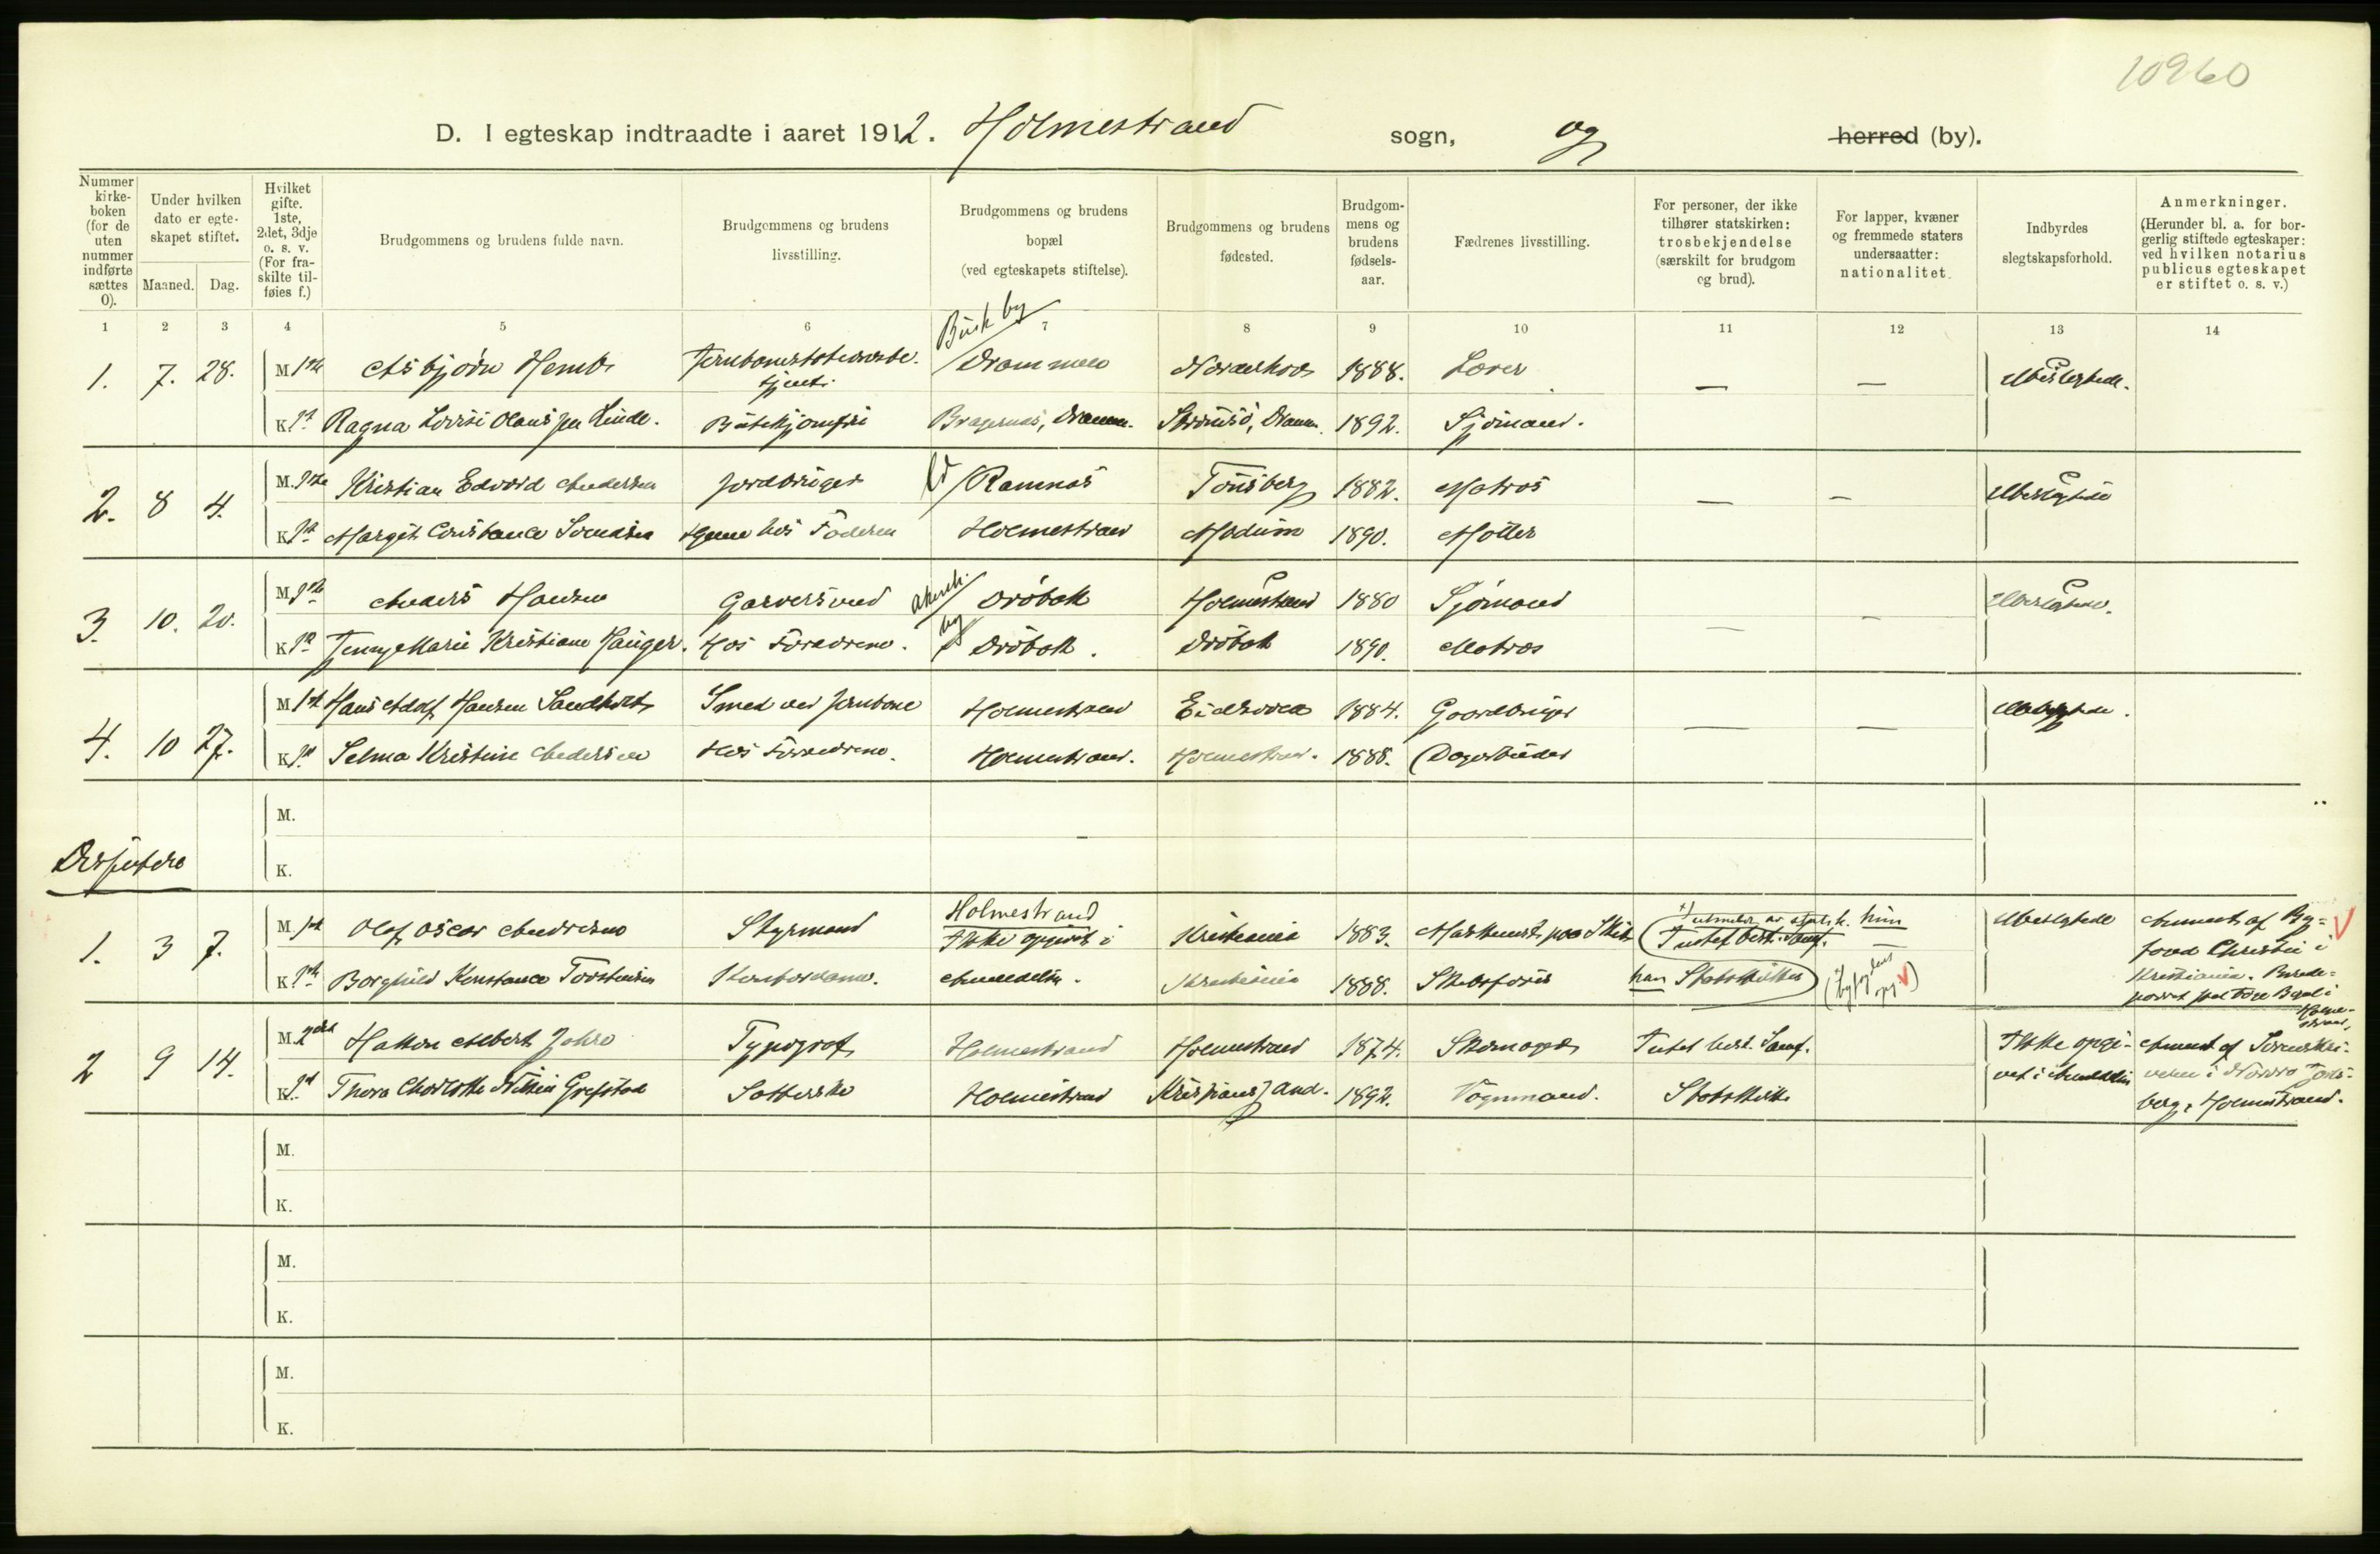 10960
D. I egteskap indtraadte i aaret 1912. Holmestrand sogn, og herred (by).
Nummer kirke-boken (for de uten nummer indførte sættes 0).
Under hvilken dato er egte-skapet stiftet.
Maaned. Dag.
Hvilket gifte. 1ste, 2det, 3dje o. s. v. (For fra-skilte til-føies f.)
Brudgommens og brudens fulde navn.
Brudgommens og brudens livsstilling.
Brudgommens og brudens bopæl (ved egteskapets stiftelse).
Brudgommens og brudens fødested.
Brudgom-mens og brudens fødsels-aar.
Fædrenes livsstilling.
For personer, der ikke tilhører statskirken: trosbekjendelse (særskilt for brudgom og brud).
For lapper, kvæner og fremmede staters undersaatter: nationalitet.
Indbyrdes slegtskapsforhold.
Anmerkninger. (Herunder bl. a. for bor-gerlig stiftede egteskaper: ved hvilken notarius publicus egteskapet er stiftet o. s. v.)
1 2 3 4 5 6 7 8 9 10 11 12 13 14
Busk by
1. 7. 28. M 1ste Asbjørn Jernbanestationsbe-tjent. Drammen Norderhov 1888. Lærer — — Ubeslegtede.
K. 1st Ragna Lovise Olaussen Linde. Butikjomfru Bragernæs, Drammen. Strømsø, Dramm. 1892. Sjømand.
2. 8 4. M. 1ste Kristian Edvard Andersen Jordbruger Ramnæs Tønsberg 1882. Matros — — Ubeslegtede
K 1st Margit Constance Svendsen Hjemme hos Faderen Holmestrand Modum 1890. Møller
3. 10. 20. M 1ste Anders Hansen Garversvend Akersh. by Drøbak Holmestrand 1880 Sjømand — — Ubeslegtede.
K 1st Jenny Marie Kristiane Hauger. Hos Forældrene. Drøbak. Drøbak 1890. Matros
4. 10 27. M 1st Hans Adolf Hansen Sandholt Smed ved Jernbane Holmestrand Eidsvold 1884. Gaardbruger — — Ubeslegtede.
K 1st Selma Kristine Andersen Hos Forældrene. Holmestrand. Holmestrand. 1888. Dagarbeider
M.
K.
Dissentere
1. 3 7. M 1st Olaf Oscar Andresen Styrmand Holmestrand Ikke opgivet i Kristiania 1883. Maskinist paa Skib utmeldt av statsk. hun Intet best. Samf. Ubeslegtede Anmeldt af By-
K 1ste Borghild Konstance Torstensen anmeldelsen. Kristiania 1888. Skibsfører han Statskirken foged Christie i
Kristiania.
2 9 14. M. 2det Hakon Albert Typograf Holmestrand Holmestrand 1874. Skomager Intet best. Samf. Ikke opgi- Anmeldt af Sorenskri-
K. 1st Thora Charlotte Grefstad Sætterske Holmestrand Kristianssand. 1892. Vognmand. Statskirken vet i anmeldelsen veren i Nordre Jarls-
berg, Holmestrand.
M.
K.
M.
K.
M.
K.